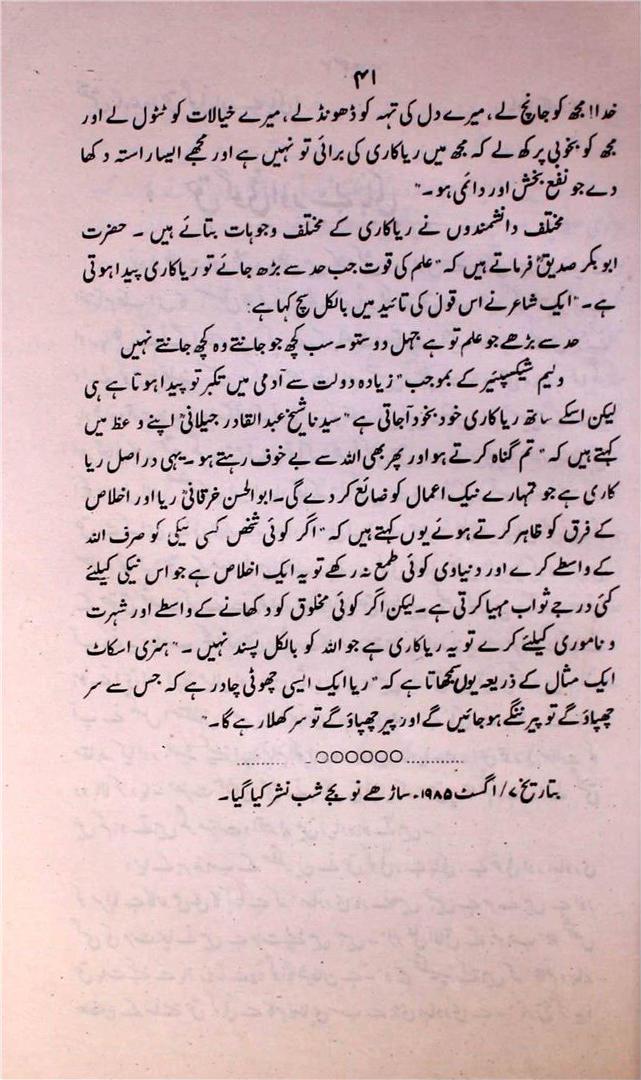 ۴۱
خدا! مجھ کو جانچ لے، میرے دل کی تہہ کو ڈھونڈ لے، میرے خیالات کو ٹٹول لے اور
مجھ کو بخوبی پرکھ لے کہ مجھ میں ریاکاری کی برائی تو نہیں ہے اور مجھے ایسا راستہ دکھا
دے جو نفع بخش اور دائمی ہو۔"
مختلف دانشمندوں نے ریاکاری کے مختلف وجوہات بتائے ہیں۔ حضرت
ابو بکر صدیقؓ فرماتے ہیں کہ "علم کی قوت جب حد سے بڑھ جائے تو ریاکاری پیدا ہوتی
ہے۔" ایک شاعر نے اس قول کی تائید میں بالکل سچ کہا ہے:
حد سے بڑھے جو علم تو ہے جہل دوستو۔ سب کچھ جو جانتے وہ کچھ جانتے نہیں
ولیم شیکسپیئر کے بموجب "زیادہ دولت سے آدمی میں تکبر تو پیدا ہوتا ہے ہی
لیکن اسکے ساتھ ریاکاری خود بخود آجاتی ہے" سیدنا شیخ عبدالقادر جیلانیؒ اپنے وعظ میں
کہتے ہیں کہ "تم گناہ کرتے ہو اور پھر بھی اللہ سے بے خوف رہتے ہو۔ یہی دراصل ریا
کاری ہے جو تمہارے نیک اعمال کو ضائع کر دے گی۔ ابوالحسن خرقانیؒ ریا اور اخلاص
کے فرق کو ظاہر کرتے ہوئے یوں کہتے ہیں کہ "اگر کوئی شخص کسی نیکی کو صرف اللہ
کے واسطے کرے اور دنیاوی کوئی طمع نہ رکھے تو یہ ایک اخلاص ہے جو اس نیکی کیلئے
کئی درجے ثواب مہیا کرتی ہے۔ لیکن اگر کوئی مخلوق کو دکھانے کے واسطے اور شہرت
و ناموری کیلئے کرے تو یہ ریاکاری ہے جو اللہ کو بالکل پسند نہیں۔" ہمزی اسکاٹ
ایک مثال کے ذریعہ یوں سمجھاتا ہے کہ "ریا ایک ایسی چھوٹی چادر ہے کہ جس سے سر
چھپاؤ گے تو پیر ننگے ہو جائیں گے اور پیر چھپاؤ گے تو سر کھلا رہے گا۔"
..........○○○○○○..........
بتاریخ ۷/ اگست ۱۹۸۵۔ ساڑھے نو بجے شب نشر کیا گیا۔